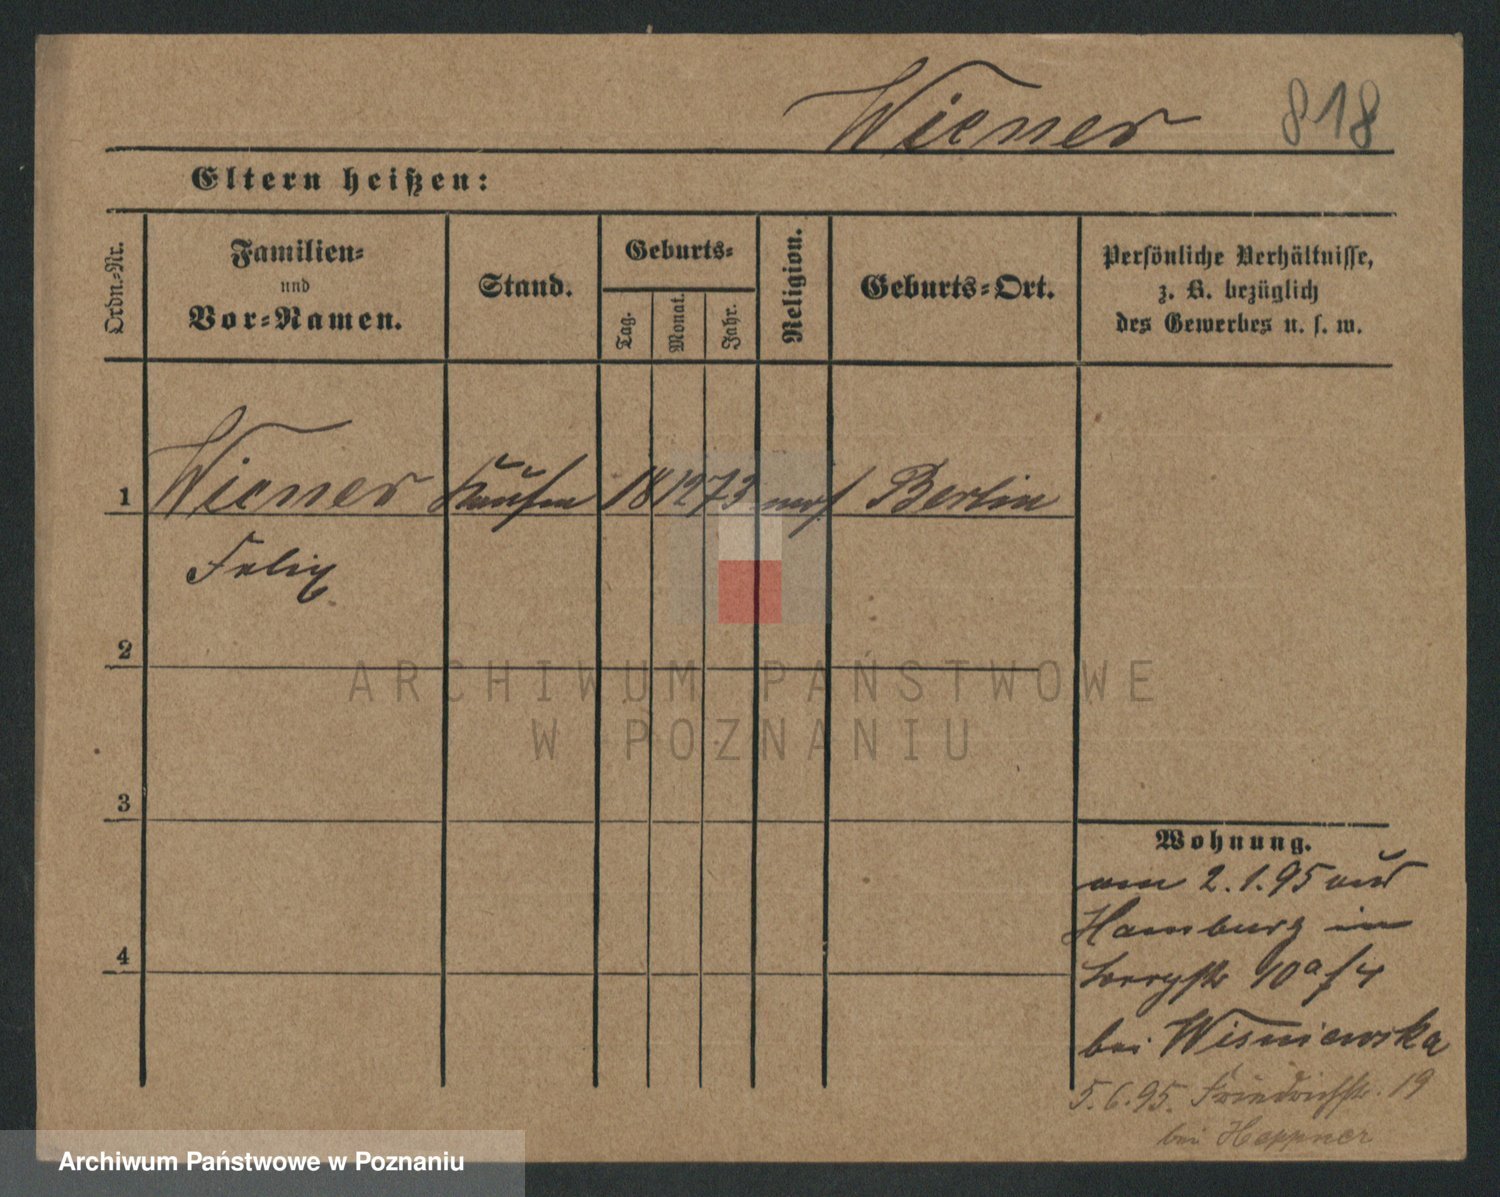 Wiener 818
Eltern heißen:
Ordn.-Nr.
Familien-
und
Vor-Namen.
Stand.
Geburts-
Tag.
Monat.
Jahr.
Religion.
Geburts-Ort.
Persönliche Verhältnisse,
z. B. bezüglich
des Gewerbes u. s. w.
1 Wiener Kaufm 18 12 73 mos Berlin
Felix
2
3
4
Wohnung.
am 2.1.95 aus
Hamburg in
10a
bei Wisniewska
5.6.95. Friedrichstr. 19
bei Heppner
ARCHIWUM PAŃSTWOWE
W POZNANIU
Archiwum Państwowe w Poznaniu